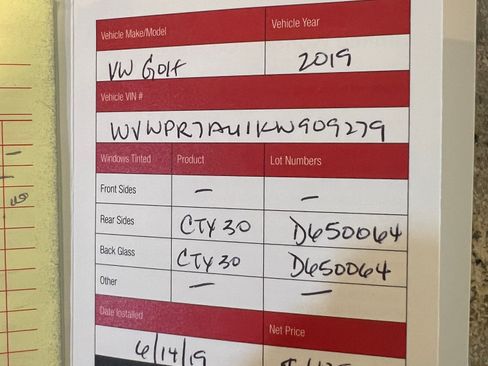 Vehicle Make/Model Vehicle Year
VW Golf 2019
Vehicle VIN #
WVWPR7AU1KW909279
Windows Tinted Product Lot Numbers
Front Sides — —
Rear Sides CTX 30 D650064
Back Glass CTX 30 D650064
Other — —
Date Installed Net Price
6/14/19